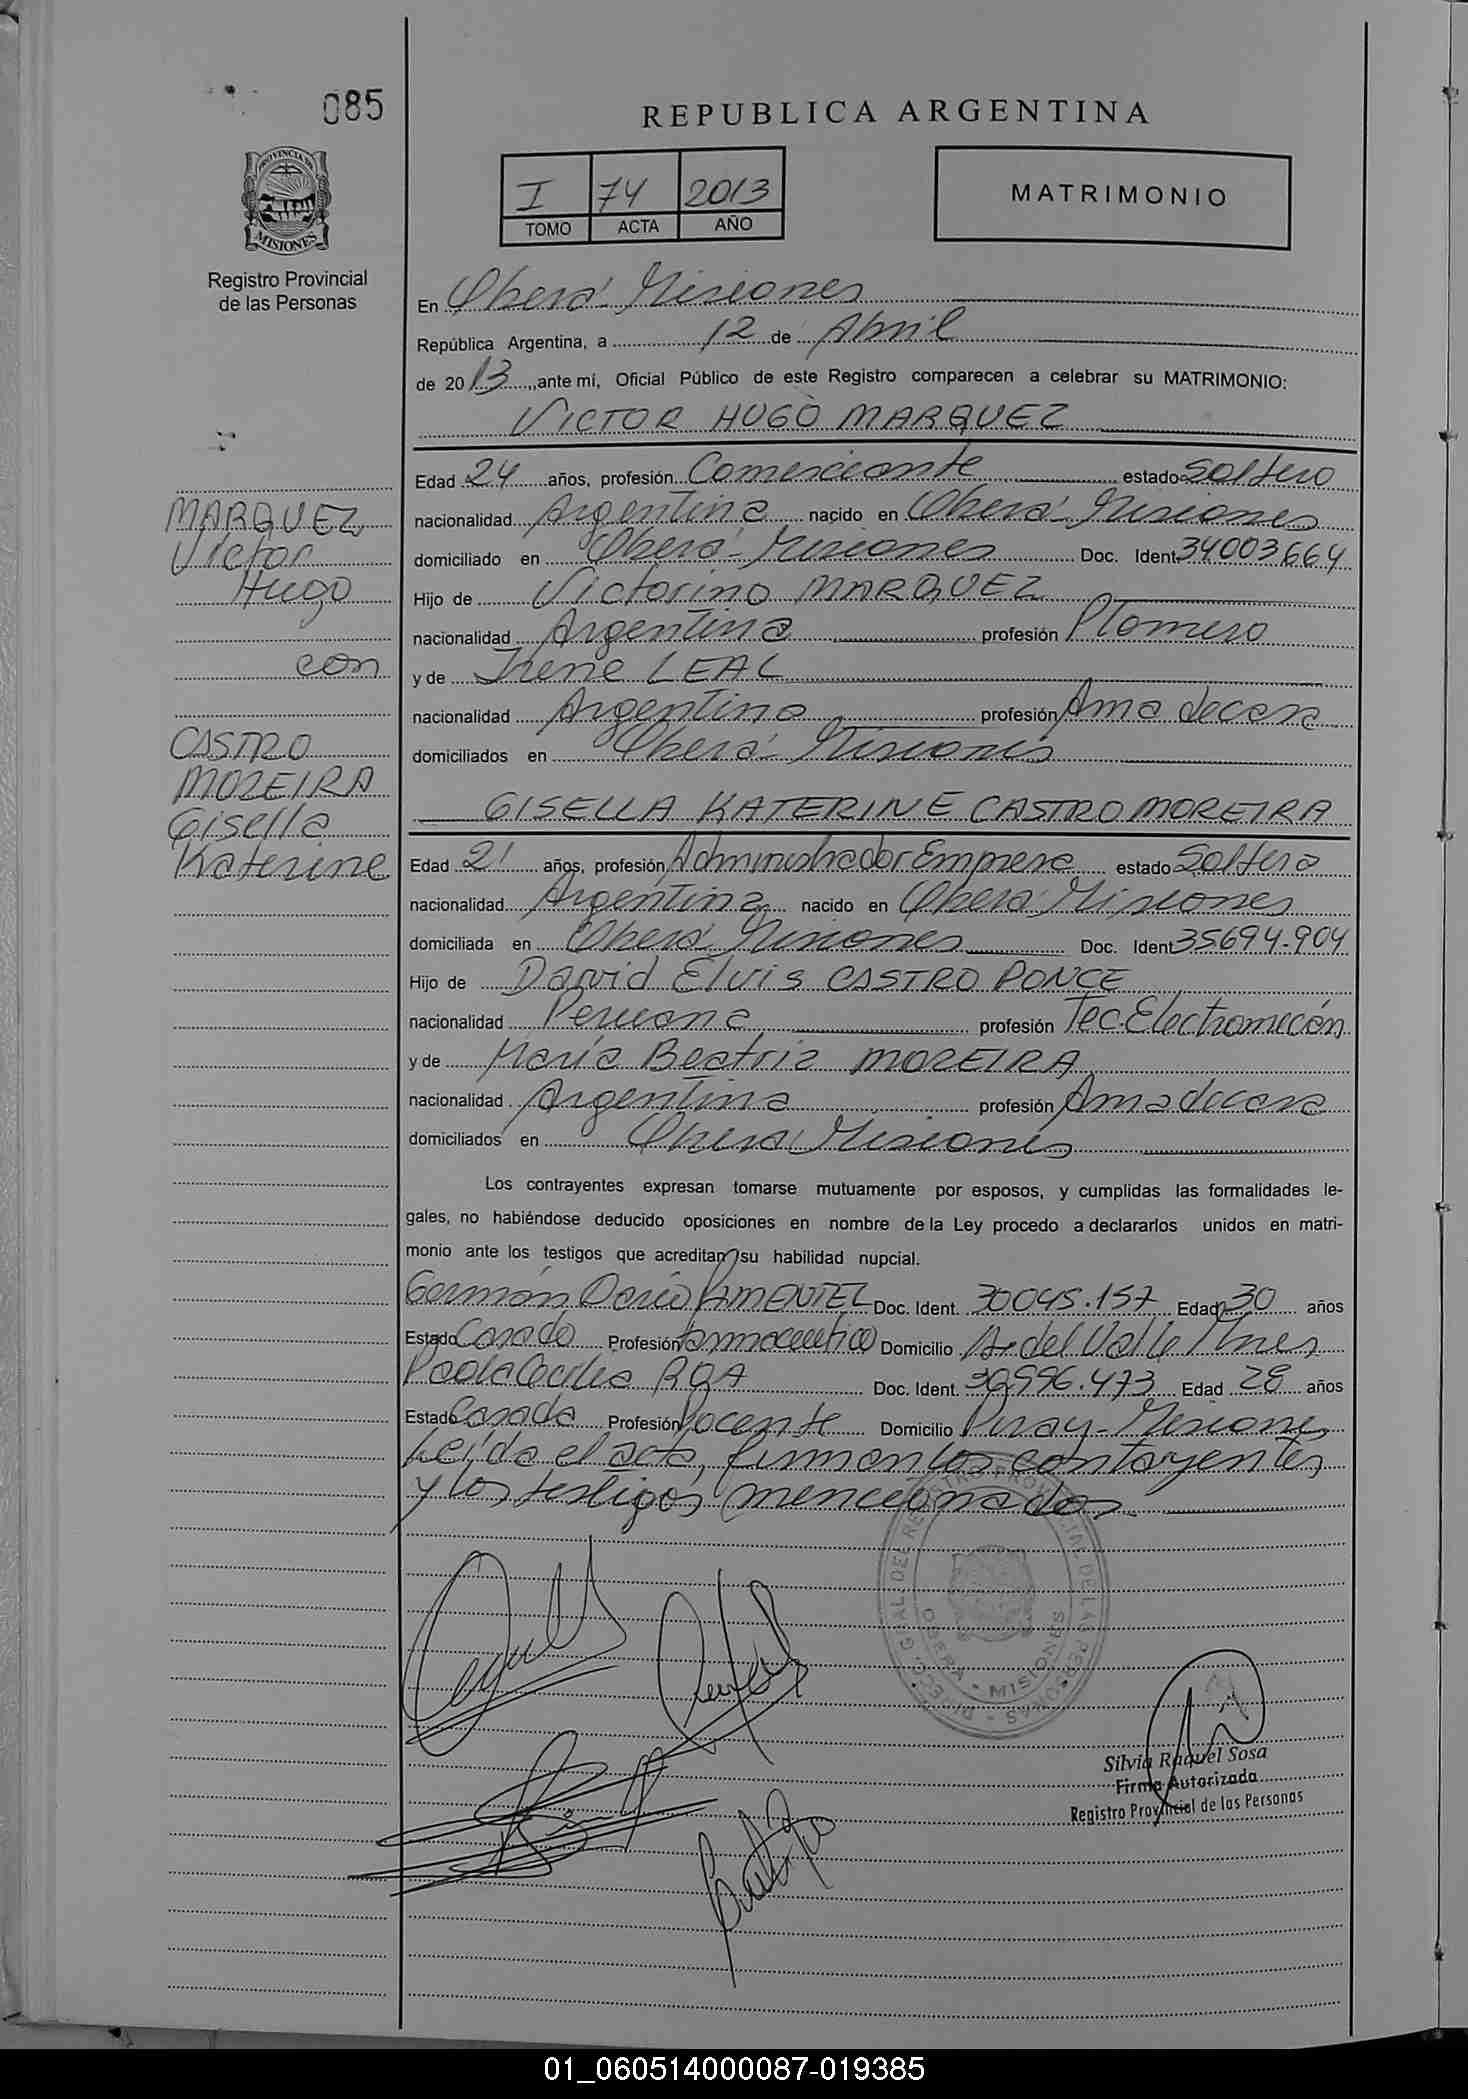 085
REPUBLICA ARGENTINA
PROVINCIA DE
MISIONES
Registro Provincial
de las Personas
I 74 2013
TOMO ACTA AÑO
MATRIMONIO
En Oberá Misiones
República Argentina, a 12 de Abril
de 2013, ante mí, Oficial Público de este Registro comparecen a celebrar su MATRIMONIO:
VICTOR HUGO MARQUEZ
Edad 24 años, profesión Comerciante estado Soltero
nacionalidad Argentina nacido en Oberá Misiones
domiciliado en Oberá - Misiones Doc. Ident. 34003664
Hijo de Victorino MARQUEZ
nacionalidad Argentina profesión Plomero
y de Irene LEAL
nacionalidad Argentina profesión Ama de casa
domiciliados en Oberá Misiones
MARQUEZ
Victor
Hugo
con
CASTRO
MOREIRA
Gisella
Katerine
GISELLA KATERINE CASTRO MOREIRA
Edad 21 años, profesión Administrador Empresa estado Soltera
nacionalidad Argentina nacido en Oberá Misiones
domiciliada en Oberá Misiones Doc. Ident 35694.904
Hijo de David Elvis CASTRO PONCE
nacionalidad Peruana profesión Tec. Electromecán
y de María Beatriz MOREIRA
nacionalidad Argentina profesión Ama de casa
domiciliados en Oberá Misiones
Los contrayentes expresan tomarse mutuamente por esposos, y cumplidas las formalidades le-
gales, no habiéndose deducido oposiciones en nombre de la Ley procedo a declararlos unidos en matri-
monio ante los testigos que acreditan su habilidad nupcial.
Germán Darío PIMENTEL Doc. Ident. 30045.157 Edad 30 años
Estado Casado Profesión farmaceutico Domicilio A. del Valle Mnes
Paola Cecilia ROA Doc. Ident. 30996.473 Edad 28 años
Estado Casada Profesión Docente Domicilio Piray - Misiones
Leída el acta, firman los contrayentes
y los testigos mencionados.
DIRECC. GRAL. DEL REGISTRO PROVINCIAL DE LAS PERSONAS
OBERA - MISIONES
Silvia Raquel Sosa
Firma Autorizada
Registro Provincial de las Personas
01_060514000087-019385